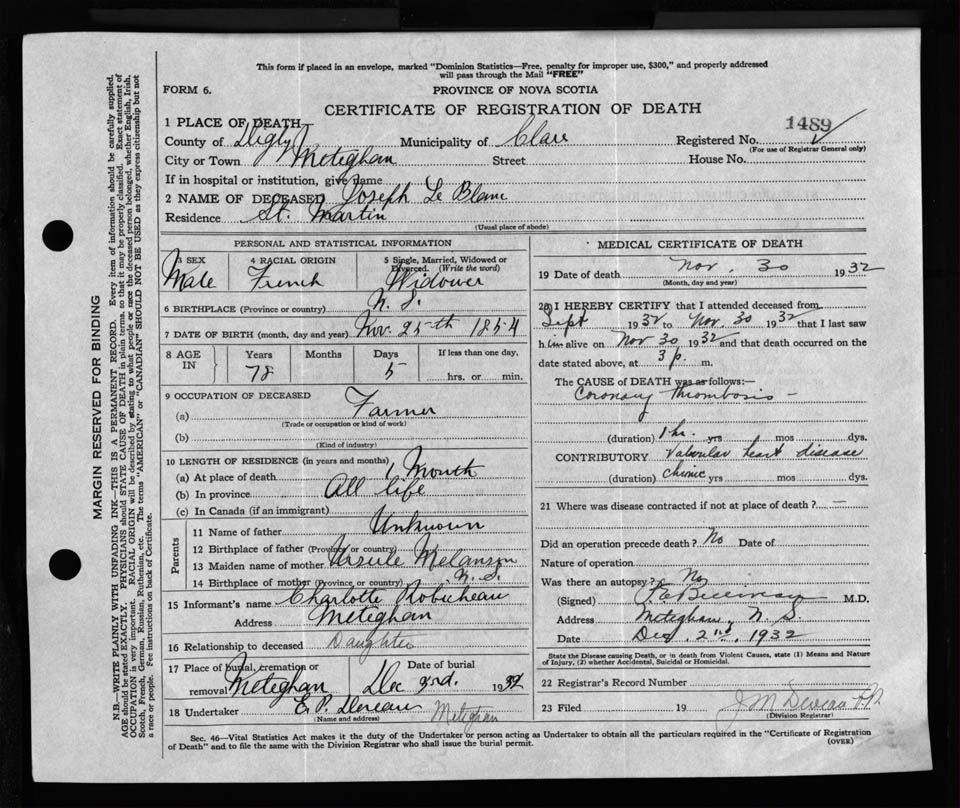 This form if placed in an envelope, marked "Dominion Statistics—Free, penalty for improper use, $300," and properly addressed
will pass through the Mail "FREE"
FORM 6.
PROVINCE OF NOVA SCOTIA
CERTIFICATE OF REGISTRATION OF DEATH
1 PLACE OF DEATH
1489
County of Digby Municipality of Clare Registered No.
(For use of Registrar General only)
City or Town Meteghan Street House No.
If in hospital or institution, give name
2 NAME OF DECEASED Joseph Le Blanc
Residence St. Martin
(Usual place of abode)
PERSONAL AND STATISTICAL INFORMATION
3 SEX 4 RACIAL ORIGIN 5 Single, Married, Widowed or
Divorced. (Write the word)
Male French Widower
6 BIRTHPLACE (Province or country) N. S.
7 DATE OF BIRTH (month, day and year) Nov. 25th 1854
8 AGE IN Years Months Days If less than one day,
78 5 hrs. or min.
9 OCCUPATION OF DECEASED
(a) Farmer
(Trade or occupation or kind of work)
(b)
(Kind of industry)
10 LENGTH OF RESIDENCE (in years and months)
(a) At place of death 1 Month
(b) In province All life
(c) In Canada (if an immigrant)
Parents
11 Name of father Unknown
12 Birthplace of father (Province or country)
13 Maiden name of mother Ursule Melanson
14 Birthplace of mother (Province or country) N. S.
15 Informant's name Charlotte Robicheau
Address Meteghan
16 Relationship to deceased Daughter
17 Place of burial, cremation or Date of burial
removal Meteghan Dec 3rd. 1932
18 Undertaker E. P. Deveau Meteghan
(Name and address)
MEDICAL CERTIFICATE OF DEATH
19 Date of death Nov. 30 1932
(Month, day and year)
20 I HEREBY CERTIFY that I attended deceased from
Sept 1932 to Nov. 30 1932 that I last saw
him alive on Nov 30 1932 and that death occurred on the
date stated above, at 3 p. m.
The CAUSE of DEATH was as follows:
Coronary Thrombosis —
(duration) 1 hr. yrs mos dys.
CONTRIBUTORY Valvular heart disease
(duration) chronic yrs mos dys.
21 Where was disease contracted if not at place of death? —
Did an operation precede death? No Date of
Nature of operation
Was there an autopsy? No
(Signed) M.D.
Address Meteghan, N. S.
Date Dec. 2nd, 1932
State the Disease causing Death, or in death from Violent Causes, state (1) Means and Nature
of Injury, (2) whether Accidental, Suicidal or Homicidal.
22 Registrar's Record Number
23 Filed 19 J M Deveau
(Division Registrar)
Sec. 46—Vital Statistics Act makes it the duty of the Undertaker or person acting as Undertaker to obtain all the particulars required in the "Certificate of Registration
of Death" and to file the same with the Division Registrar who shall issue the burial permit. (OVER)
MARGIN RESERVED FOR BINDING
N.B.—WRITE PLAINLY WITH UNFADING INK—THIS IS A PERMANENT RECORD. Every item of information should be carefully supplied.
AGE should be stated EXACTLY. PHYSICIANS should STATE CAUSE OF DEATH in plain terms, so that it may be properly classified. Exact statement of
OCCUPATION is very important. RACIAL ORIGIN will be described by stating to what people or race the deceased person belonged, whether English, Irish,
Scotch, French, German, Russian, Ruthenian, etc. The terms "AMERICAN" or "CANADIAN" SHOULD NOT BE USED as they express citizenship but not
a race or people. See instructions on back of Certificate.